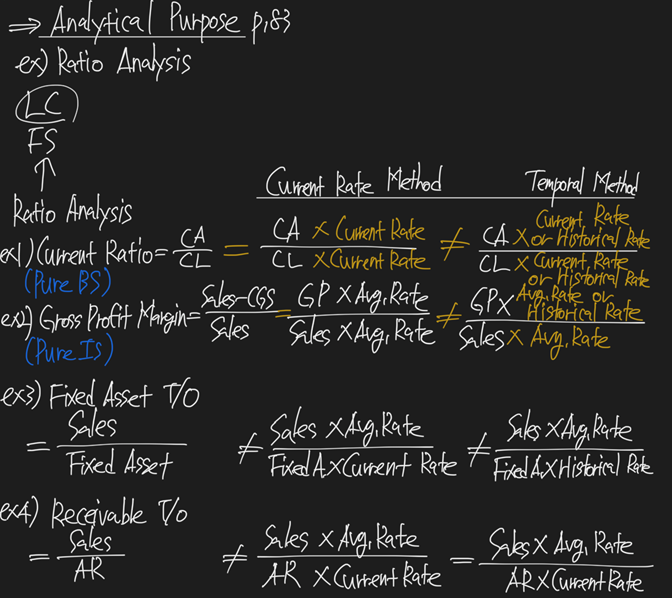 ⇒ Analytical Purpose p.83
ex) Ratio Analysis
LC
FS
↑
Ratio Analysis
Current Rate Method Temporal Method
ex1) Current Ratio = CA/CL = CA × Current Rate / CL × Current Rate ≠ CA × Current Rate or Historical Rate / CL × Current Rate or Historical Rate
(Pure BS)
ex2) Gross Profit Margin = Sales-CGS / Sales = GP × Avg. Rate / Sales × Avg. Rate ≠ GP × Avg. Rate or Historical Rate / Sales × Avg. Rate
(Pure Is)
ex3) Fixed Asset T/O
= Sales / Fixed Asset ≠ Sales × Avg. Rate / Fixed A × Current Rate ≠ Sales × Avg. Rate / Fixed A × Historical Rate
ex4) Receivable T/O
= Sales / AR ≠ Sales × Avg. Rate / AR × Current Rate = Sales × Avg. Rate / AR × Current Rate